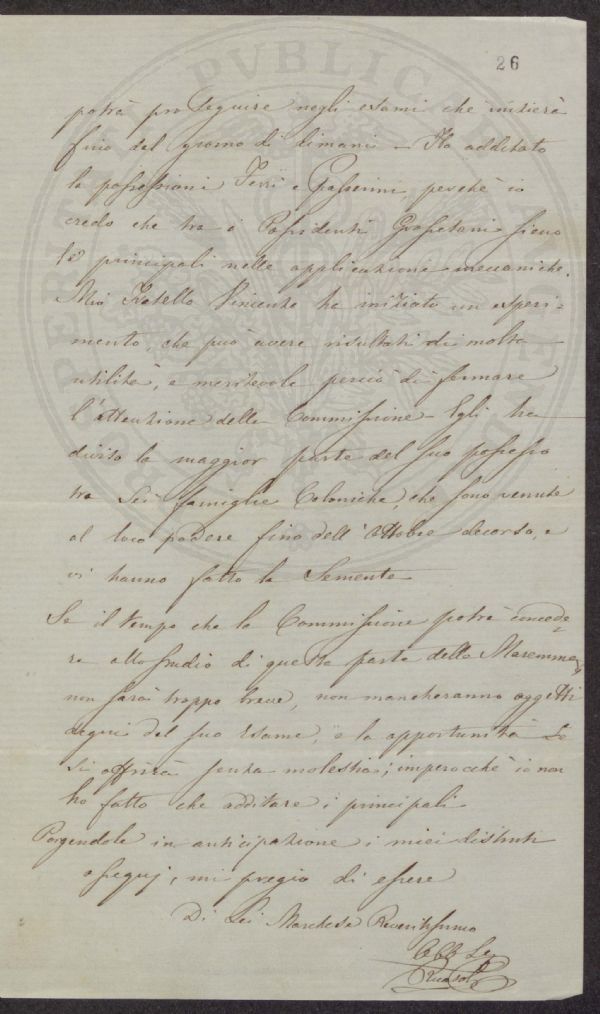 26
potrà proseguire negli esami che inizierà
fino dal giorno di dimani – Ho additato
le possessioni Ferri e Passerini, perchè io
credo che tra i Possidenti Grossetani sieno
le principali nelle applicazioni meccaniche.
Mio Fratello Vincenzo ha iniziato un esperi-
mento, che può avere risultati di molta
utilità, e meritevole perciò di fermare
l'attenzione della Commissione – Egli ha
diviso la maggior parte del suo possesso
tra sei famiglie Coloniche, che sono venute
al loro podere fino dell'Ottobre decorso, e
vi hanno fatto la Semente
Se il tempo che la Commissione potrà concede-
re allo studio di questa parte della Maremma,
non sarà troppo breve, non mancheranno oggetti
degni del suo esame, e la opportunità Le
si offrirà senza molestia; imperocchè io non
ho fatto che additare i principali
Porgendole in anticipazione i miei distinti
ossequj, mi pregio di essere
Di Lei Marchese Reveritissimo
Ricasoli